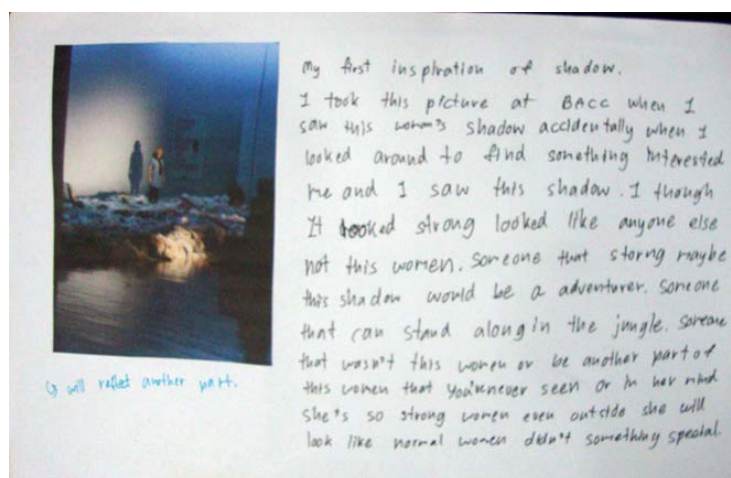 My first inspiration of shadow.
I took this picture at BACC when I
saw this woman's shadow accidentally when I
looked around to find something interested
me and I saw this shadow. I though
It looked strong looked like anyone else
not this women. Someone that storng maybe
this shadow would be a adventurer. Someone
that can stand alongin the jungle. Someone
that wasn't this women or be another part of
this women that you'nnever seen or in her mind
She's so strong women even outside she will
look like normal women didn't something special.
will reflect another part.